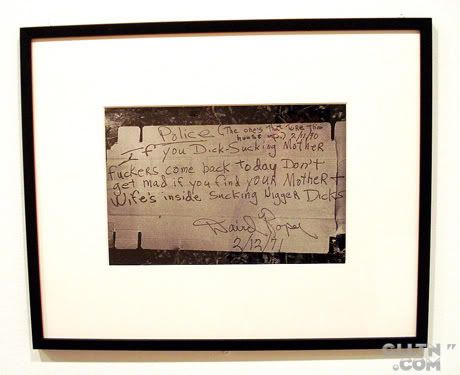 Police (The one's that tore this
house up) 2/11/70
If you Dick-Sucking Mother
Fuckers come back today Don't
get mad if you find your Mother +
Wife's inside sucking Nigger Dicks
2/12/71
.COM